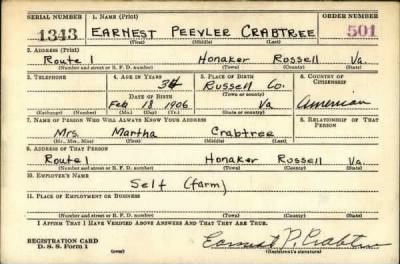 SERIAL NUMBER 1. NAME (Print) ORDER NUMBER
1343 EARNEST PEEVLER CRABTREE 501
(First) (Middle) (Last)
2. ADDRESS (Print)
Route 1 Honaker Rossell Va.
(Number and street or R. F. D. number) (Town) (County) (State)
3. TELEPHONE 4. AGE IN YEARS 5. PLACE OF BIRTH 6. COUNTRY OF CITIZENSHIP
34 Russell Co.
DATE OF BIRTH (Town or county)
Feb 18 1906 Va American
(Exchange) (Number) (Mo.) (Day) (Yr.) (State or country)
7. NAME OF PERSON WHO WILL ALWAYS KNOW YOUR ADDRESS 8. RELATIONSHIP OF THAT PERSON
Mrs. Martha Crabtree
(Mr., Mrs., Miss) (First) (Middle) (Last)
9. ADDRESS OF THAT PERSON
Route 1 Honaker Russell Va.
(Number and street or R. F. D. number) (Town) (County) (State)
10. EMPLOYER'S NAME
Self (farm)
11. PLACE OF EMPLOYMENT OR BUSINESS
(Number and street or R. F. D. number) (Town) (County) (State)
I AFFIRM THAT I HAVE VERIFIED ABOVE ANSWERS AND THAT THEY ARE TRUE.
REGISTRATION CARD
D. S. S. Form 1 (over) Earnest P. Crabtree
(Registrant's signature)